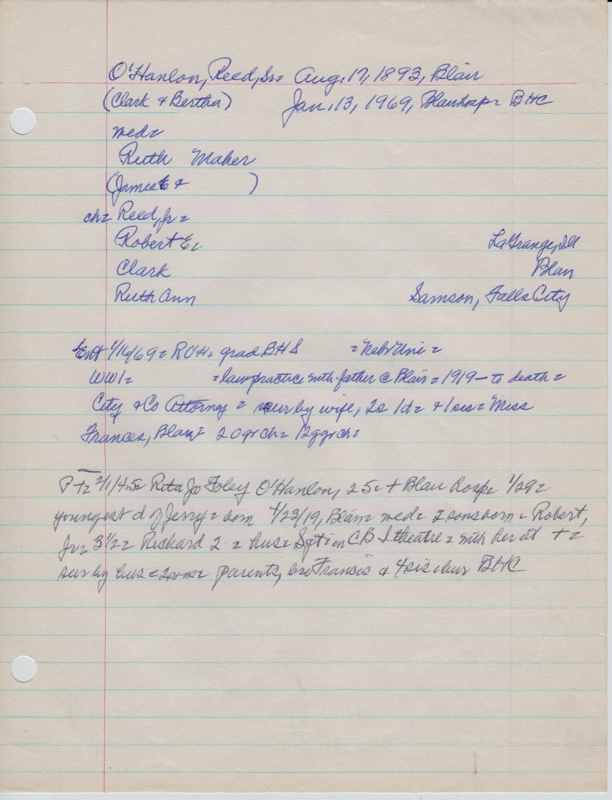 O'Hanlon, Reed, Sr= Aug. 17, 1893, Blair
(Clark + Bertha) Jan. 13, 1969, Blair hosp= BHC
med=
Ruth Maher
(James E + )
ch= Reed, Jr=
Robert E. LaGrange, Ill
Clark Blair
Ruth Ann Samson, Falls City
Ent 1/16/69= ROH. grad BHS = Nebr Uni=
WW1= = law practice with father @ Blair= 1919 - to death=
City + Co Attorney = sur by wife, 2s 1d= + 1 sis= Miss
Frances, Blair= 20 gr ch= 12 ggr ch=
P-T= 2/1/45= Rita Jo Foley O'Hanlon, 25= + Blair hosp= 1/29=
youngest d of Jerry= born 4/23/19, Blair= med= 2 sons born = Robert,
Jr= 3 1/2= Richard 2 = hus= Sgt in CBI theatre= with her at +=
sur by hus= 2 sons= parents, bro Francis + 4 sis= bur BHC